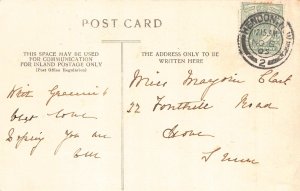 POST CARD
THIS SPACE MAY BE USED
FOR COMMUNICATION
FOR INLAND POSTAGE ONLY
(Post Office Regulation)
THE ADDRESS ONLY TO BE
WRITTEN HERE
HENDON
12.15 PM
2
With
best love
Hoping you are
Miss Marjorie Clark
22 Fonthill Road
Hove